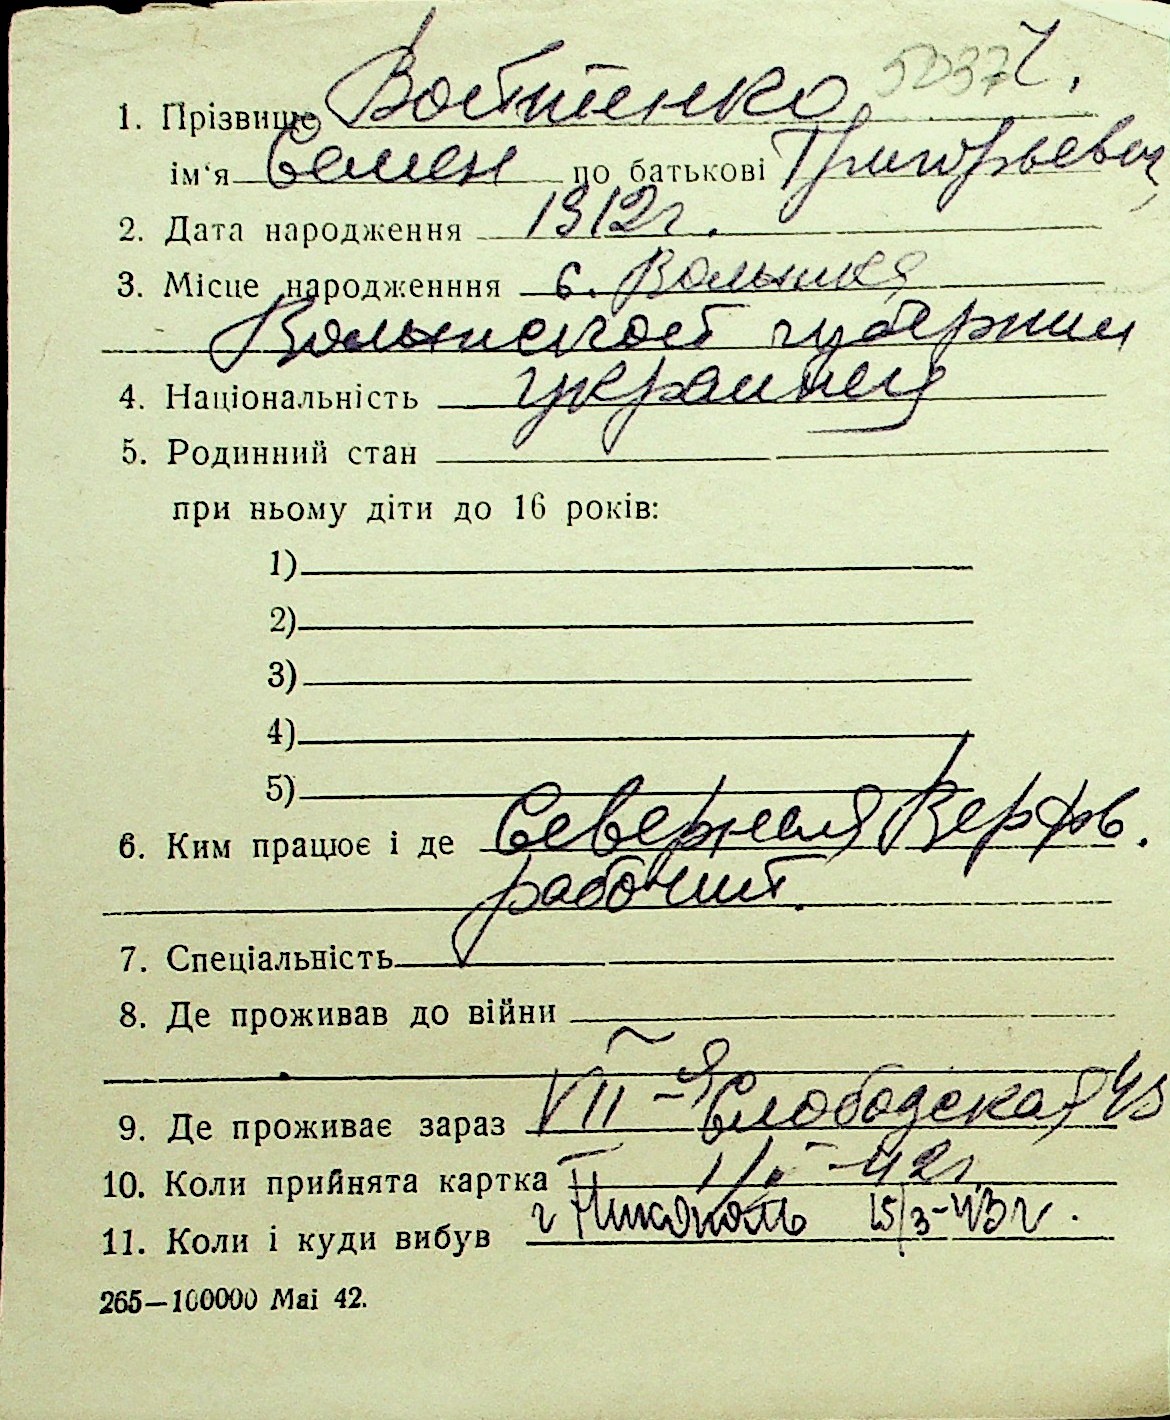 5037 ч.
1. Прізвище Войтенко
ім'я Семен по батькові Григорьевич
2. Дата народження 1912г.
3. Місце народженння с. Волынка
Волынской губернии
4. Національність украинец
5. Родинний стан
при ньому діти до 16 років:
1)
2)
3)
4)
5)
6. Ким працює і де Северная Верфь.
рабочий.
7. Спеціальність
8. Де проживав до війни
9. Де проживає зараз VII-я Слободская 45
10. Коли прийнята картка -42г.
11. Коли і куди вибув г Никополь 15/3-43г.
265—100000 Mai 42.